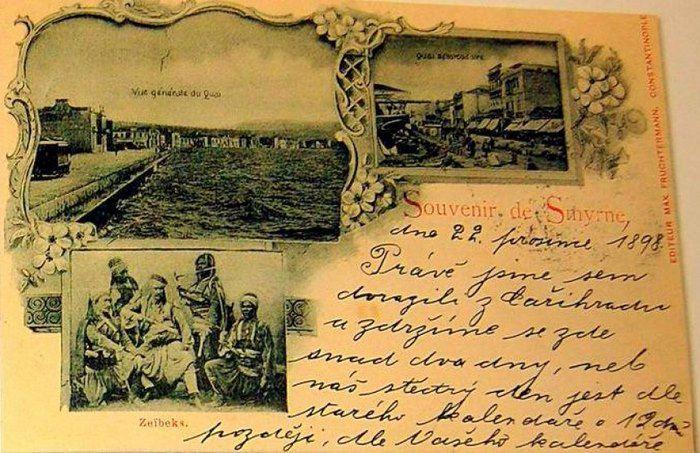 Vue générale du Quai
Quai débarcadère
EDITEUR MAX FRUCHTERMANN, CONSTANTINOPLE
Souvenir de Smyrne,
dne 22. prosince 1898
Právě jsme sem
dorazili z Cařihradu
a zdržíme se zde
snad dva dny, neb
náš štedrý den jest dle
starého kalendáře o 12 dní
později, dle Vašeho kalendáře
Zeïbeks.